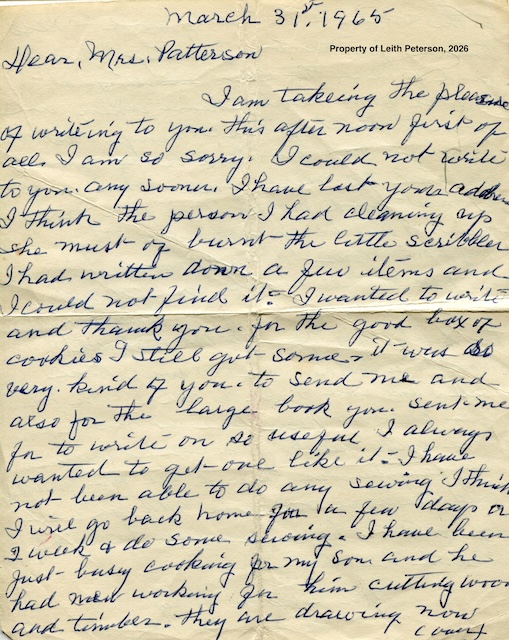 March 31st, 1965
Property of Leith Peterson, 2026
Dear, Mrs. Patterson
I am takeing the pleasure
of writeing to you. this after noon first of
all I am so sorry. I could not write
to you. any sooner. I have lost your address
I think the person I had cleaning up
she must of burnt the little scribbler
I had written down a few items and
I could not find it. I wanted to write
and thank you. for the good box of
cookies I still got some. it was so
very. kind of you. to send me and
also for the large book you. sent me
for to write on so useful I always
wanted to get one like it. I have
not been able to do any sewing I think
I will go back home for a few days or
a week & do some sewing. I have been
just busy cooking for my son and he
had men working for him cutting wood
and timber. they are drawing now